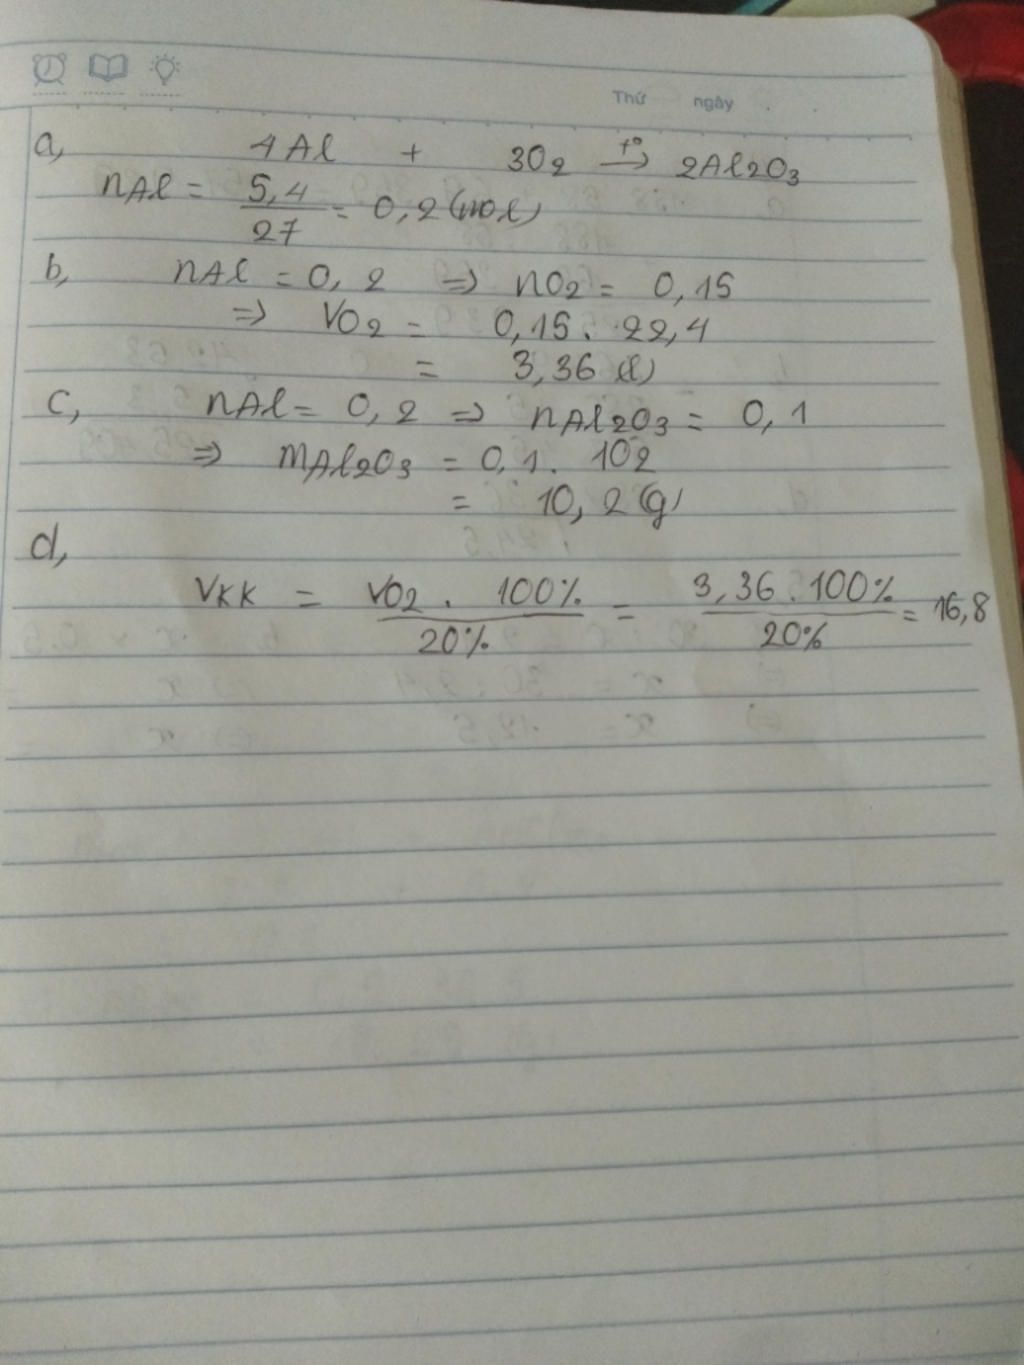 Thứ ngày
a, 4Al + 3O2 t° → 2Al2O3
nAl = 5,4 / 27 = 0,2 (mol)
b, nAl = 0, 2 => nO2 = 0,15
=> VO2 = 0,15 . 22,4
= 3,36 (l)
c, nAl = 0, 2 => nAl2O3 = 0, 1
=> mAl2O3 = 0,1. 102
= 10, 2 (g)
d,
VKK = VO2 . 100% / 20% = 3,36 . 100% / 20% = 16,8